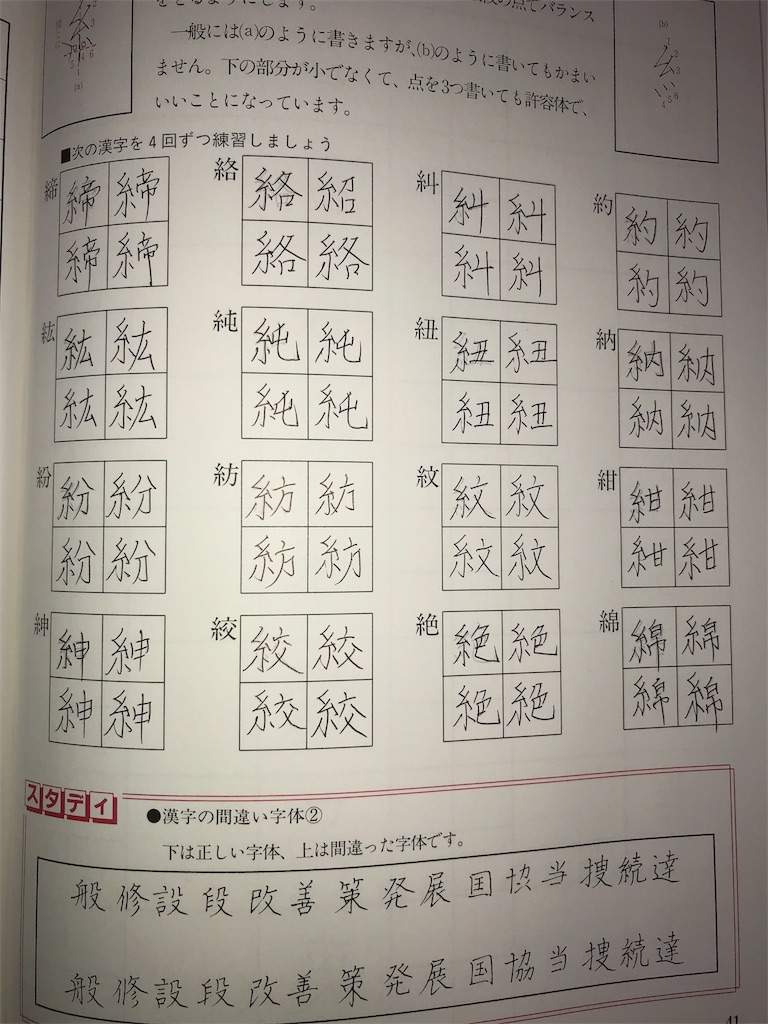 をとるようにします。
の点でバランス
一般には(a)のように書きますが、(b)のように書いてもかまい
ません。下の部分が小でなくて、点を3つ書いても許容体で、
いいことになっています。
(a)
(b)
■次の漢字を4回ずつ練習しましょう
締 締 締 締 締
絡 絡 紹 絡 絡
糾 糾 糾 糾 糾
約 約 約 約 約
紘 紘 紘 紘 紘
純 純 純 純 純
紐 紐 紐 紐 紐
納 納 納 納 納
紛 紛 紛 紛 紛
紡 紡 紡 紡 紡
紋 紋 紋 紋 紋
紺 紺 紺 紺 紺
紳 紳 紳 紳 紳
絞 絞 絞 絞 絞
絶 絶 絶 絶 絶
綿 綿 綿 綿 綿
スタディ
●漢字の間違い字体②
下は正しい字体、上は間違った字体です。
般 修 設 段 改 善 策 発 展 国 協 当 捜 続 達
般 修 設 段 改 善 策 発 展 国 協 当 捜 続 達
41